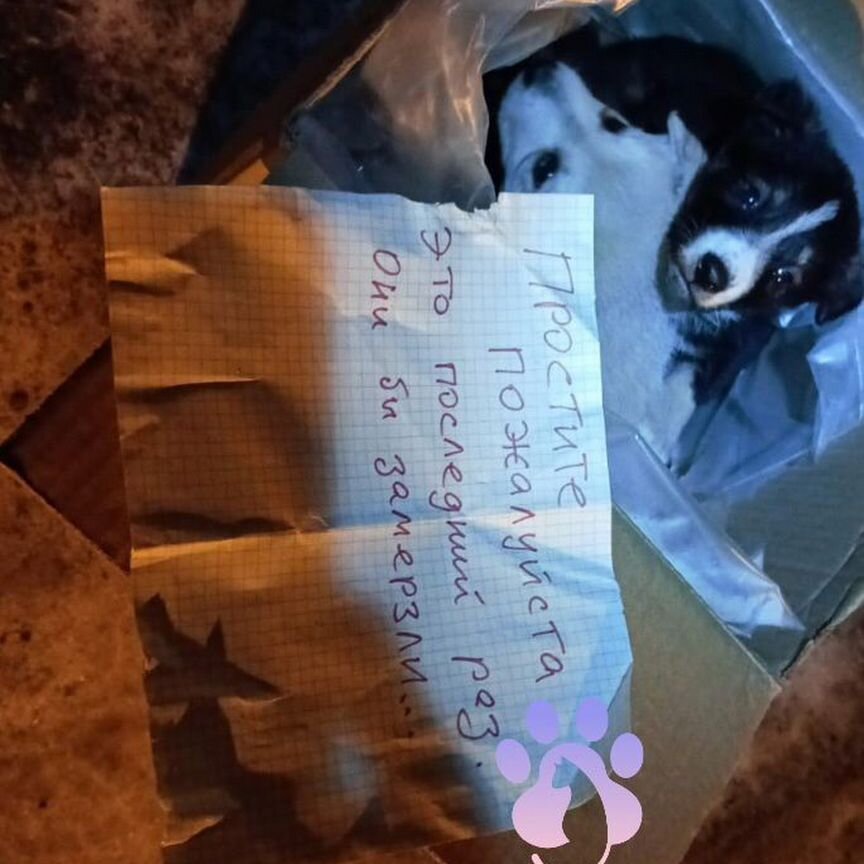 Простите
пожалуйста
это последний раз.
Они би замерзли...